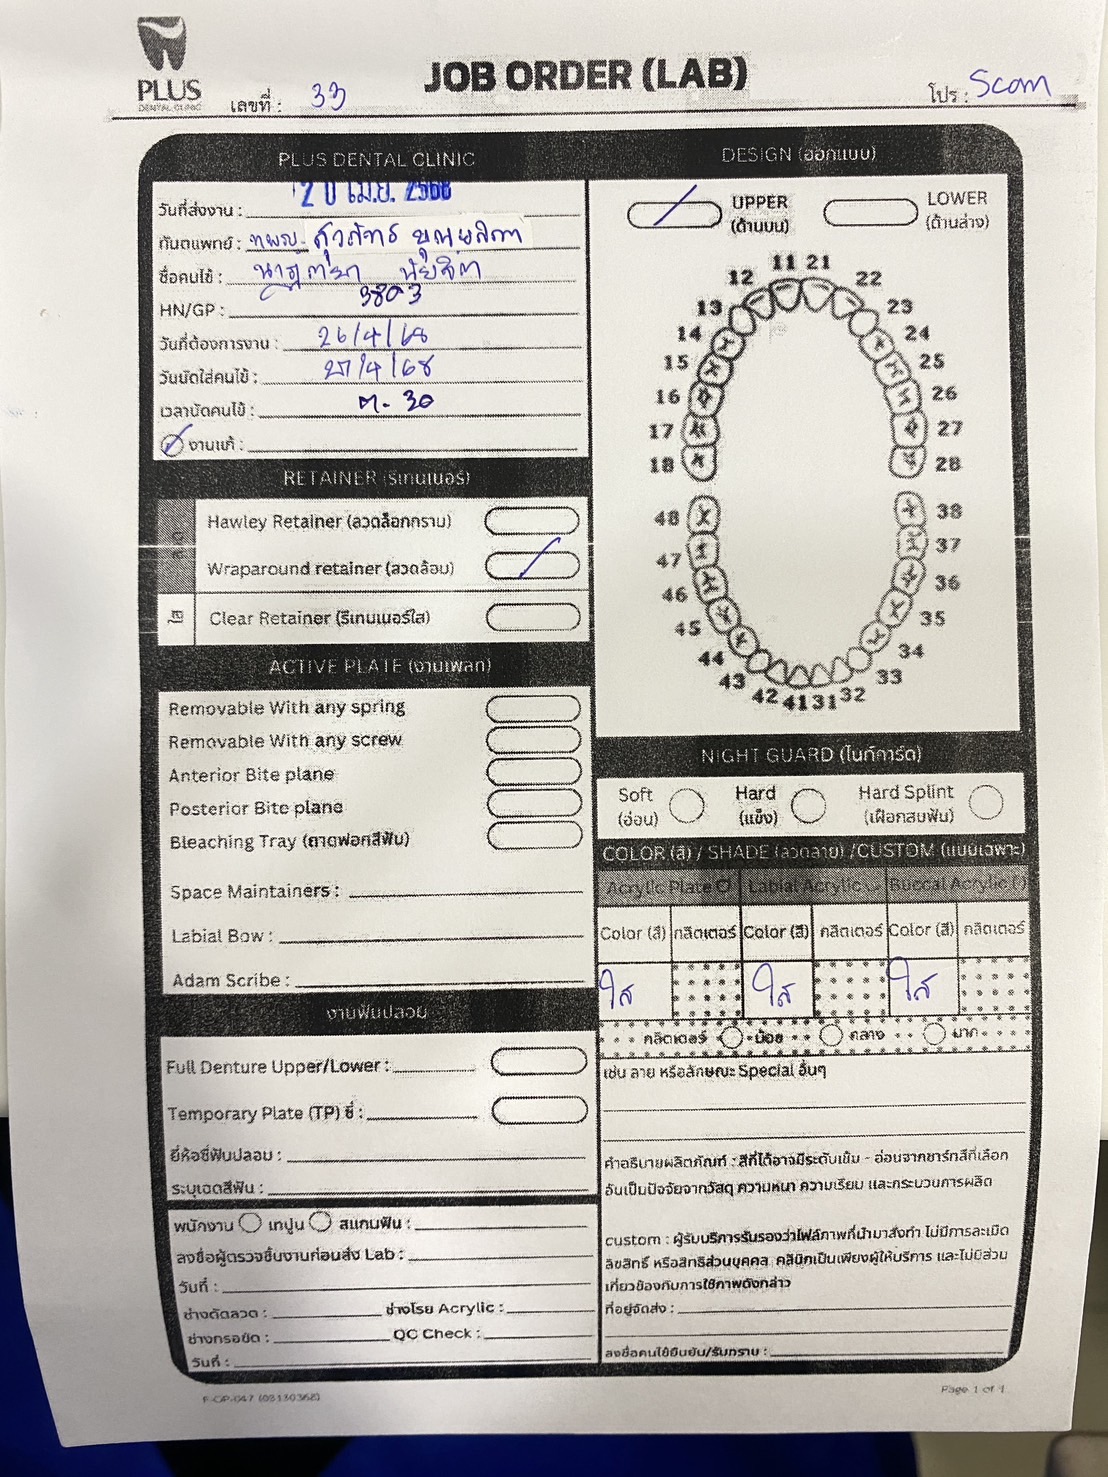 PLUS
DENTAL CLINIC
JOB ORDER (LAB)
เลขที่ : 33
โปร : Scom
PLUS DENTAL CLINIC
วันที่ส่งงาน : 20 เม.ย. 2568
ทันตแพทย์ : ทพญ.
ชื่อคนไข้ :
HN/GP : 3803
วันที่ต้องการงาน : 26/4/68
วันนัดใส่คนไข้ : 27/4/68
เวลานัดคนไข้ :
งานแก้ :
RETAINER (รีเทนเนอร์)
Hawley Retainer (ลวดล็อกกราม)
Wraparound retainer (ลวดล้อม)
Clear Retainer (รีเทนเนอร์ใส)
ACTIVE PLATE (งานเพลท)
Removable With any spring
Removable With any screw
Anterior Bite plane
Posterior Bite plane
Bleaching Tray (ถาดฟอกสีฟัน)
Space Maintainers :
Labial Bow :
Adam Scribe :
งานฟันปลอม
Full Denture Upper/Lower :
Temporary Plate (TP) ซี่ :
ยี่ห้อซี่ฟันปลอม :
ระบุเฉดสีฟัน :
พนักงาน เทปูน สแกนฟัน :
ลงชื่อผู้ตรวจชิ้นงานก่อนส่ง Lab :
วันที่ :
ช่างดัดลวด : ช่างโรย Acrylic :
ช่างกรอขัด : QC Check :
วันที่ :
DESIGN (ออกแบบ)
UPPER
(ด้านบน)
LOWER
(ด้านล่าง)
11 21
12 22
13 23
14 24
15 25
16 26
17 27
18 28
48 38
47 37
46 36
45 35
44 34
43 33
42 41 31 32
NIGHT GUARD (ไนท์การ์ด)
Soft
(อ่อน)
Hard
(แข็ง)
Hard Splint
(เฝือกสบฟัน)
COLOR (สี) / SHADE (ลวดลาย) /CUSTOM (แบบเฉพาะ)
Acrylic Plate Labial Acrylic Buccal Acrylic
Color (สี) กลิตเตอร์ Color (สี) กลิตเตอร์ Color (สี) กลิตเตอร์
ใส ใส ใส
กลิตเตอร์ น้อย กลาง มาก
เช่น ลาย หรือลักษณะ Special อื่นๆ
คำอธิบายผลิตภัณฑ์ : สีที่ได้อาจมีระดับเข้ม - อ่อนจากชาร์ทสีที่เลือก
อันเป็นปัจจัยจากวัสดุ ความหนา ความเรียบ และกระบวนการผลิต
custom : ผู้รับบริการรับรองว่าไฟล์ภาพที่นำมาสั่งทำ ไม่มีการละเมิด
ลิขสิทธิ์ หรือสิทธิส่วนบุคคล คลินิกเป็นเพียงผู้ให้บริการ และไม่มีส่วน
เกี่ยวข้องกับการใช้ภาพดังกล่าว
ที่อยู่จัดส่ง :
ลงชื่อคนไข้ยืนยัน/รับทราบ :
Page 1 of 1